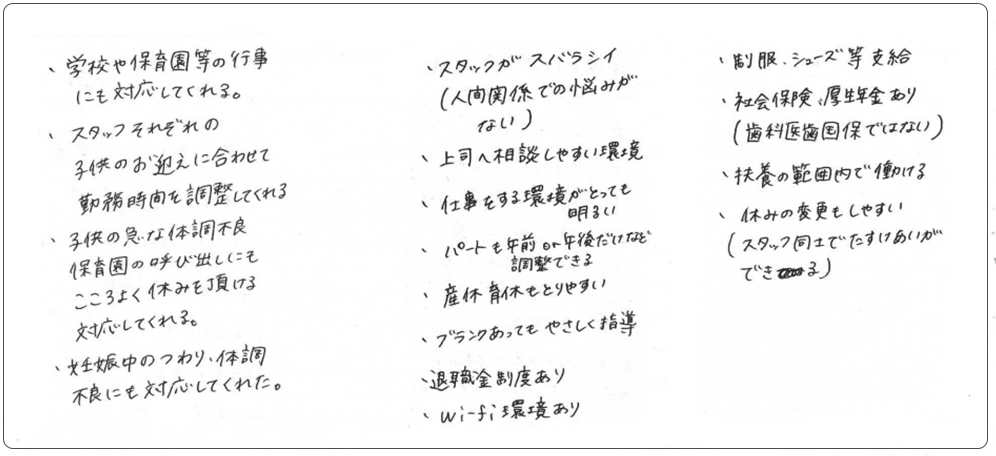 、学校や保育園等の行事
にも対応してくれる。
、スタッフそれぞれの
子供のお迎えに合わせて
勤務時間を調整してくれる
、子供の急な体調不良
保育園の呼び出しにも
こころよく休みを頂ける
対応してくれる。
、妊娠中のつわり、体調
不良にも対応してくれた。
、スタッフが スバラシイ
(人間関係での悩みが
ない)
、上司へ相談しやすい環境
、仕事をする環境がとっても
明るい
、パートも午前or午後だけなど
調整できる
、産休育休もとりやすい
、ブランクあってもやさしく指導
、退職金制度あり
、Wi-fi環境あり
、制服、シューズ等支給
、社会保険、厚生年金あり
(歯科医歯国保ではない)
、扶養の範囲内で働ける
、休みの変更もしやすい
(スタッフ同士でたすけあいが
できる)